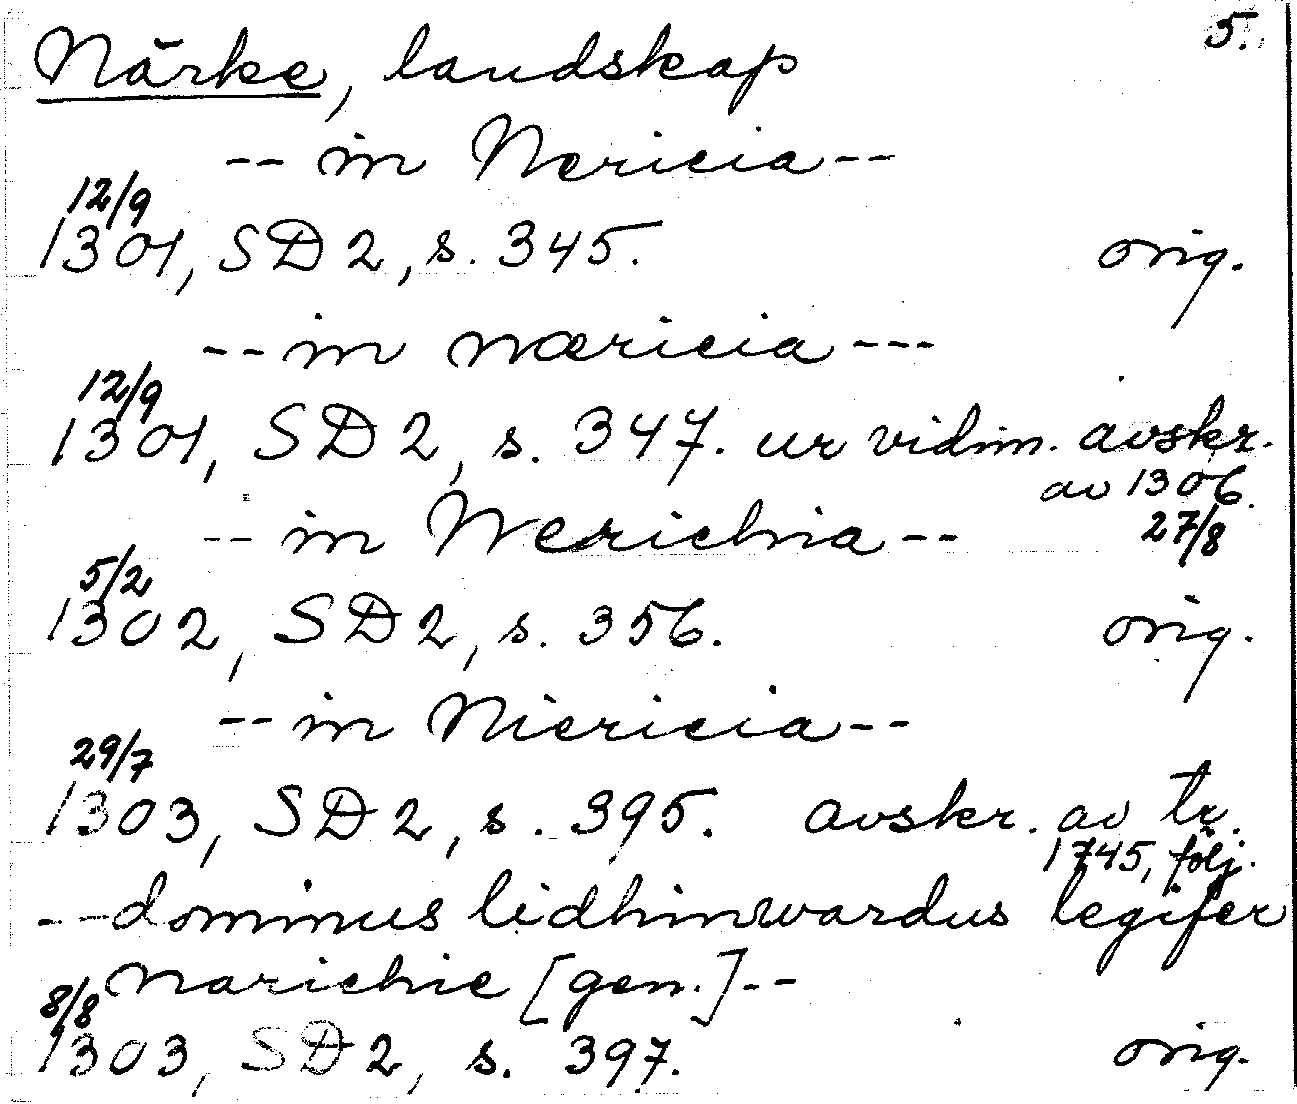 Närke, landskap 5.
-- in Nericia --
12/9
1301, SD 2, s. 345. orig.
-- in næricia ---
12/9
1301, SD 2, s. 347. ur vidim. avskr.
av 1306
27/8
-- in Nerichia --
5/2
1302, SD 2, s. 356. orig.
-- in Niericia --
29/7
1303, SD 2, s. 395. avskr. av tr.
1745, följ.
-- dominus lidhinwardus legifer
narichie [gen.] --
8/8
1303, SD 2, s. 397. orig.